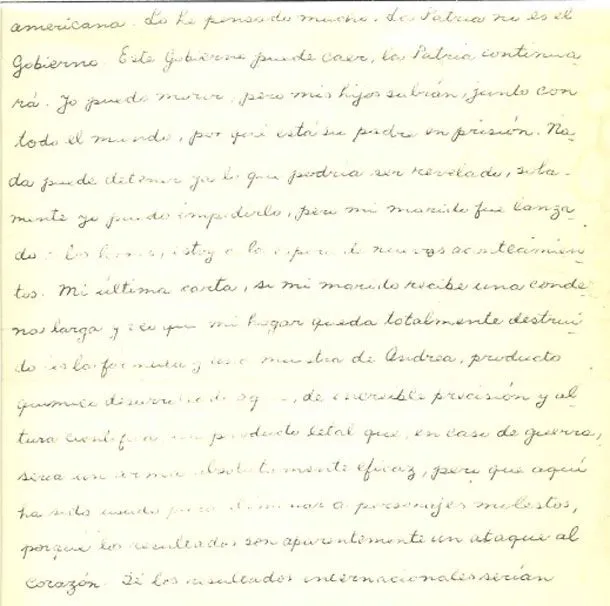 americana. Lo he pensado mucho. La Patria no es el
Gobierno. Este Gobierno puede caer, la Patria continua
rá. Yo puedo morir, pero mis hijos sabrán, junto con
todo el mundo, por qué está su padre en prisión. Na-
da puede detener ya lo que podría ser revelado, sola-
mente yo puedo impedirlo, pero mi marido fue lanza-
do a los leones, estoy a la espera de nuevos acontecimien-
tos. Mi última carta, si mi marido recibe una conde
na larga y veo que mi hogar queda totalmente destrui
do es la fórmula y una muestra de Andrea, producto
químico desarrollado aquí, de increible precisión y al-
tura científica un producto letal que, en caso de guerra,
sería un arma absolutamente eficaz, pero que aquí
ha sido usado para eliminar a personajes molestos,
porque los resultados son aparentemente un ataque al
corazón. Sé los resultados internacionales serían